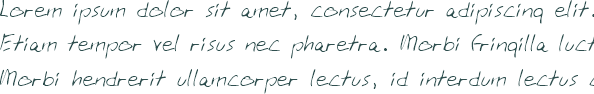 Lorem ipsum dolor sit amet, consectetur adipiscing elit.
Etiam tempor vel risus nec pharetra. Morbi fringilla luct
Morbi hendrerit ullamcorper lectus, id interdum lectus